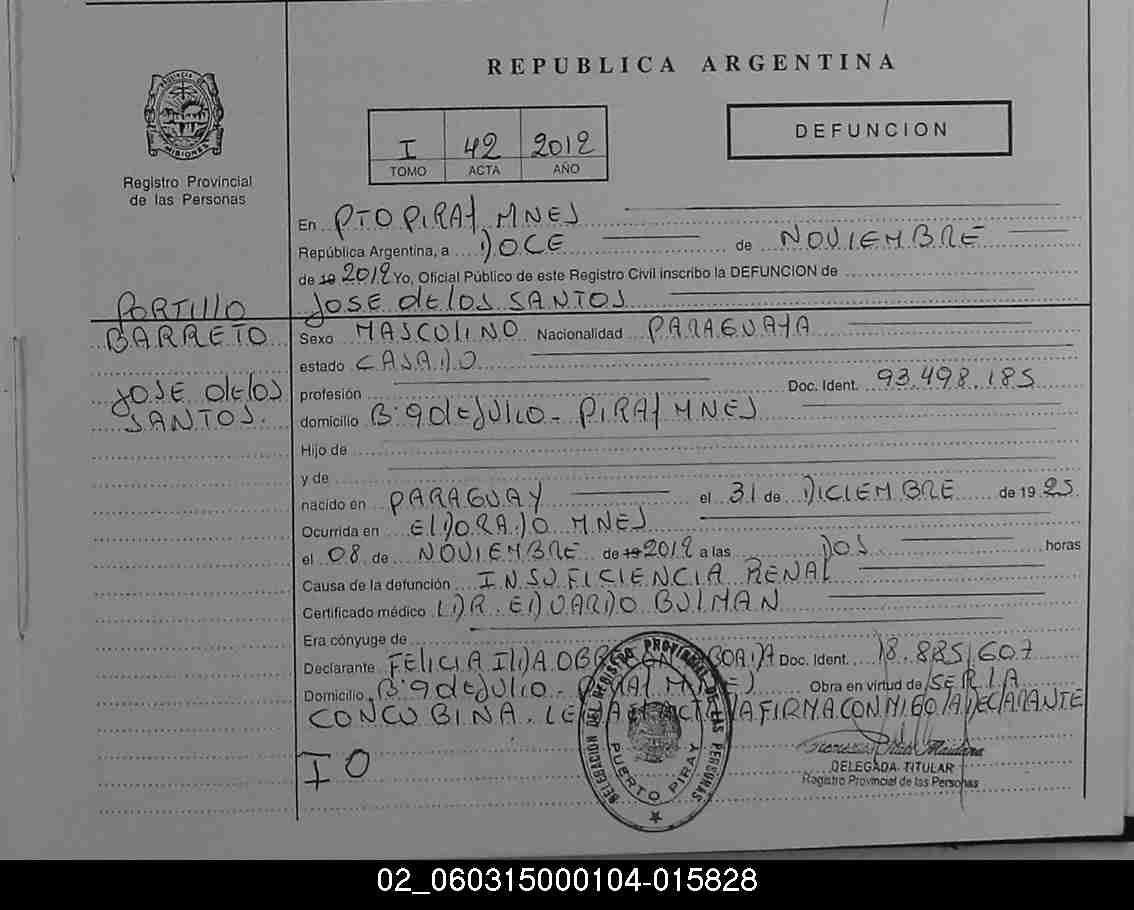 REPUBLICA ARGENTINA
PROVINCIA DE MISIONES
I 42 2012
TOMO ACTA AÑO
DEFUNCION
Registro Provincial
de las Personas
En PTO PIRAY MNES
República Argentina, a DOCE de NOVIEMBRE
de 19 2012 Yo, Oficial Público de este Registro Civil inscribo la DEFUNCION de
PORTILLO
BARRETO
JOSE DE LOS
SANTOS.
JOSE DE LOS SANTOS
Sexo MASCULINO Nacionalidad PARAGUAYA
estado CASADO
profesión Doc. Ident. 93.498.185
domicilio B: 9 DE JULIO - PIRAY MNES
Hijo de
y de
nacido en PARAGUAY el 31 de DICIEMBRE de 19 25
Ocurrida en ELDORADO MNES
el 08 de NOVIEMBRE de 19 2012 a las DOS horas
Causa de la defunción INSUFICIENCIA RENAL
Certificado médico DR. EDUARDO BULMAN
Era cónyuge de
Declarante FELICIA ILDA Doc. Ident. 18.885.607
Domicilio B: 9 DE JULIO - PIRAY MNES Obra en virtud de SER LA
CONCUBINA. LEIDA EL ACTA LA FIRMA CONMIGO LA DECLARANTE
I O
DELEGACION DEL REGISTRO PROVINCIAL DE LAS PERSONAS
PUERTO PIRAY
DELEGADA TITULAR
Registro Provincial de las Personas
02_060315000104-015828